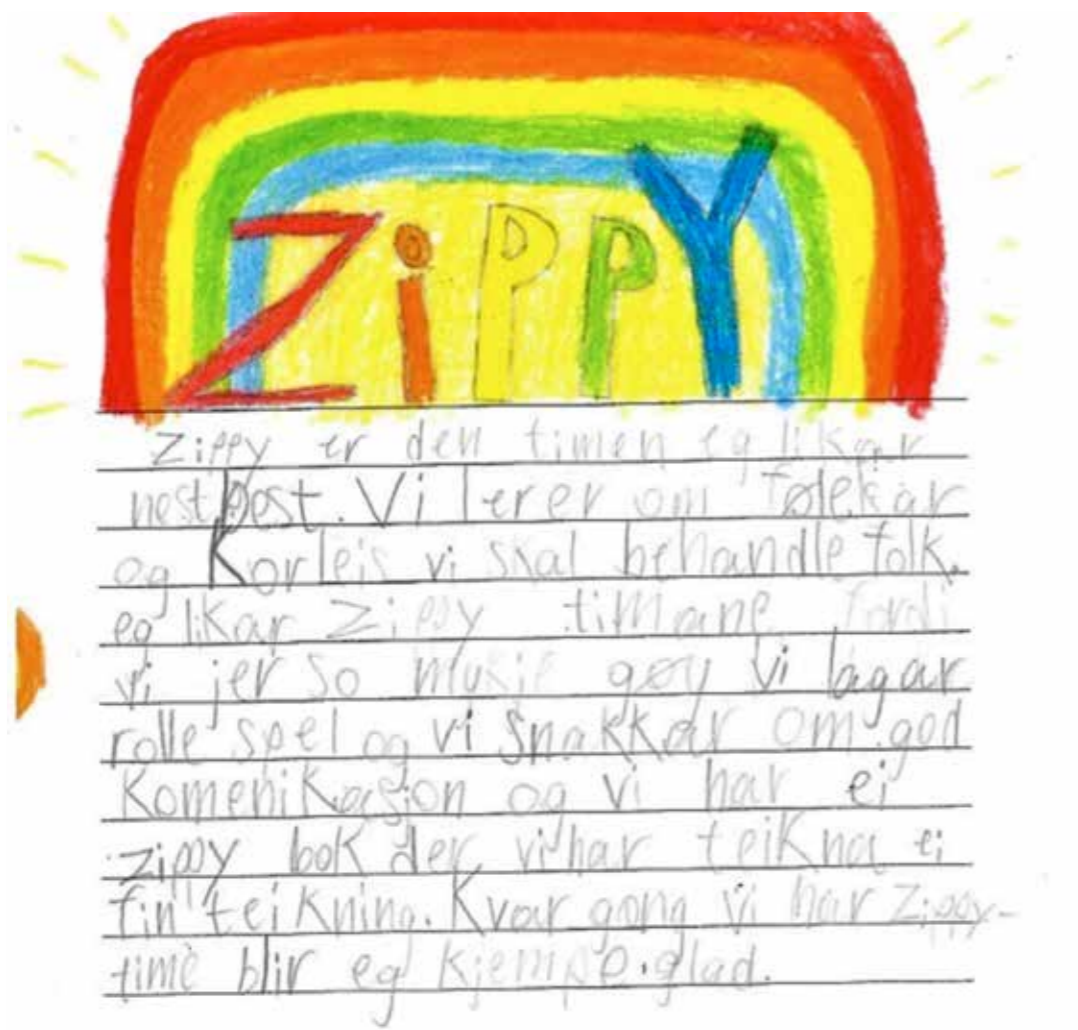 ZiPPY
Zippy er den timen eg likar
nest best. Vi lerer om følekar
og Korleis vi skal behandle folk.
eg likar Zippy timane fordi
vi jer so mykje gøy vi lagar
rolle spel og vi snakkar om god
Komenikasjon og vi har ei
zippy bok der vi har teikna ei
fin teikning. Kvar gong vi har Zippy-
time blir eg kjempe.glad.